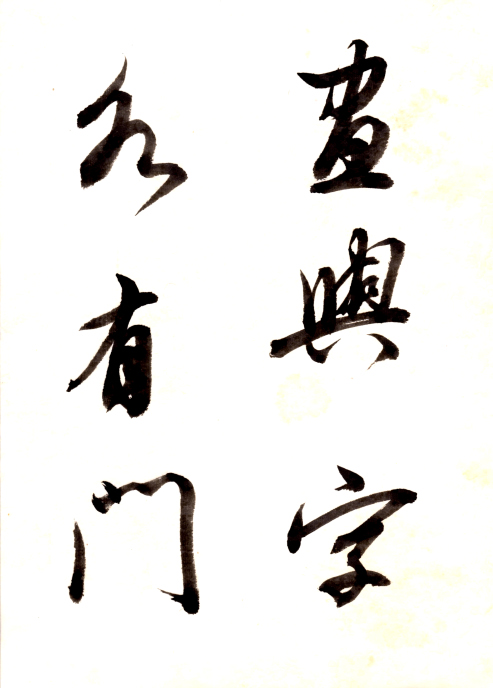 畫與字
各有門